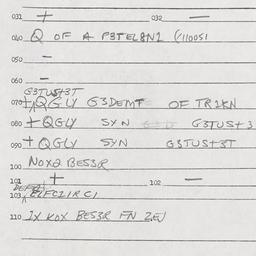 031 + 032 —
040 Q OF A P3TEL8N1 (110051
050 -
060 -
G3TUS+3T
070 + QGLY G3DEMT OF TR1KN
080 + QGLY SYN G3TUS+3
090 + QGLY SYN G3TUS+3T
100 NOXQ BES3R
101 + 102 —
103 ELFC21RC1
110 IX KOX BES3R FN 2EJ